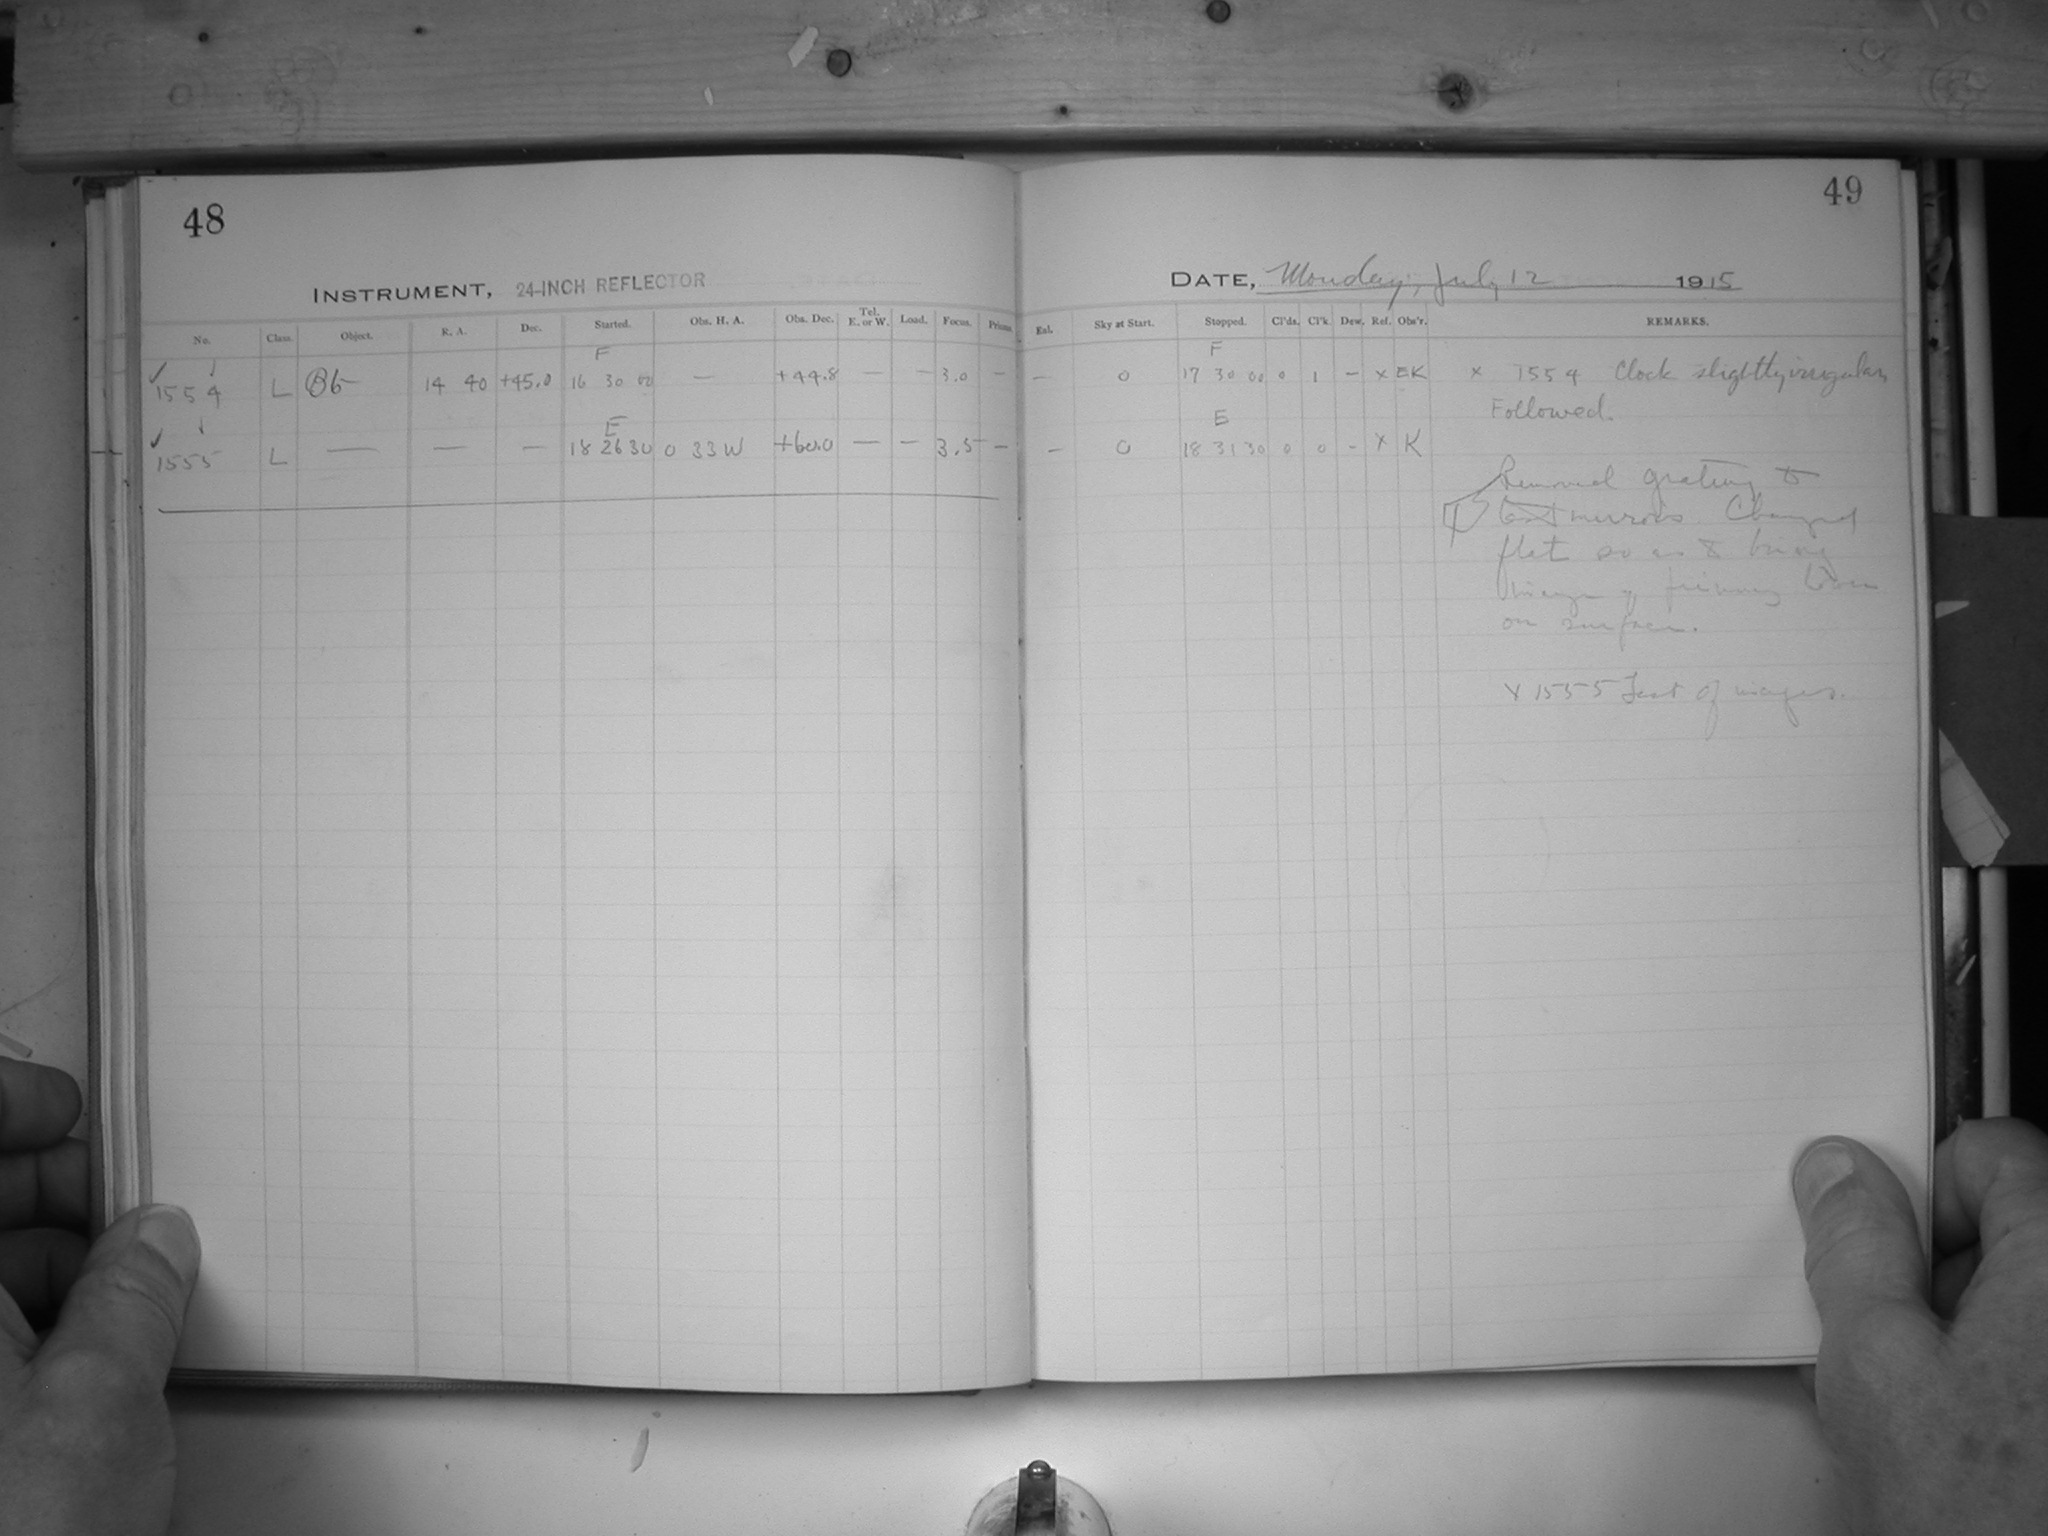 48
49
INSTRUMENT, 24-INCH REFLECTOR
DATE, Monday, July 12 1915
No. Class. Object. R. A. Dec. Started. Obs. H. A. Obs. Dec. Tel. E. or W. Load. Focus. Prisms. Enl. Sky at Start. Stopped. Cl'ds. Cl'k. Dew. Ref. Obs'r. REMARKS.
F F
1554 L 14 40 +45.0 16 30 00 — +44.8 — — 3.0 — — 0 17 30 00 0 1 — x EK x 1554 Clock slightly irregular
Followed.
E E
1555 L — — — 18 26 30 0 33 W +60.0 — — 3.5 — — 0 18 31 30 0 0 - x K
Removed grating to
test mirrors. Changed
flat so as to bring
image of primary
on surface.
x 1555 Test of images.